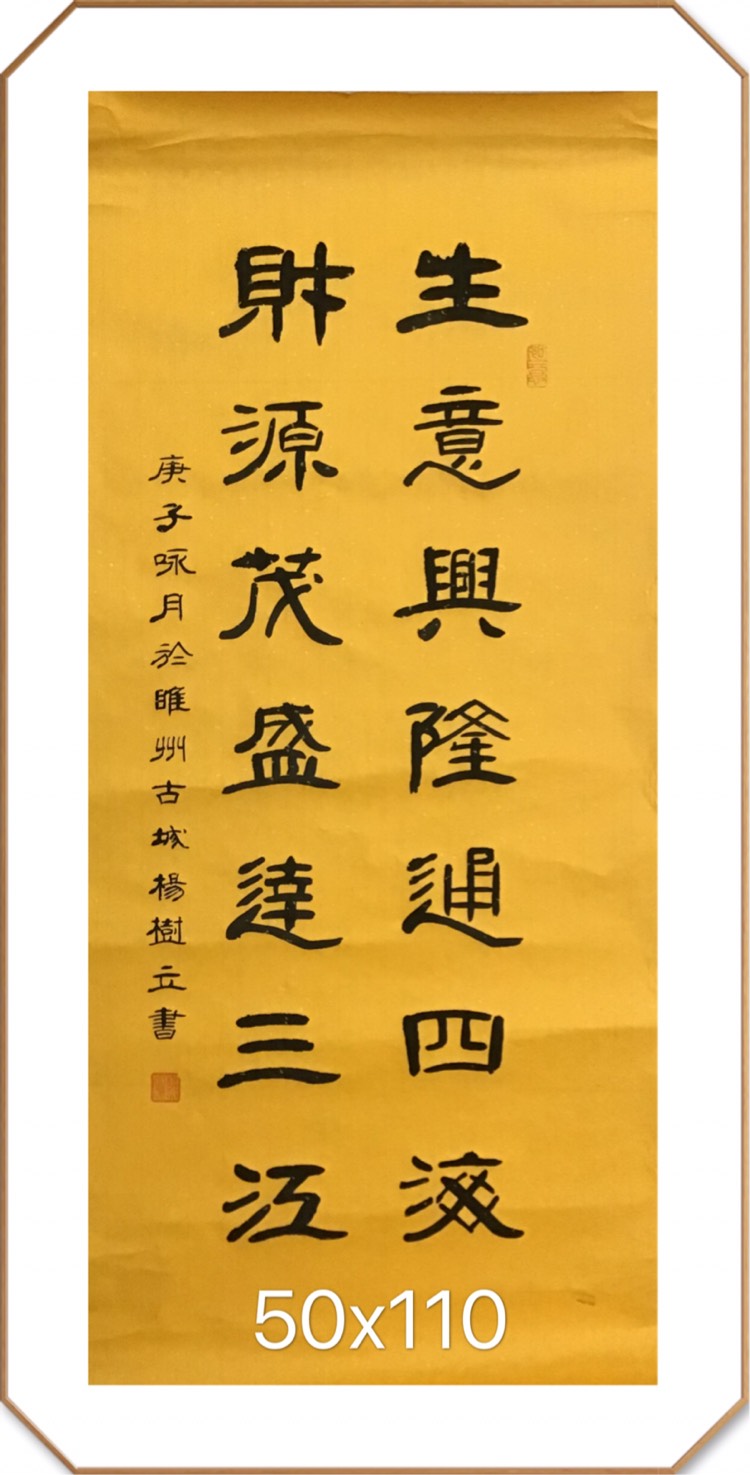 生意興隆通四海
財源茂盛達三江
庚子咏月於睢州古城楊樹立書
50x110